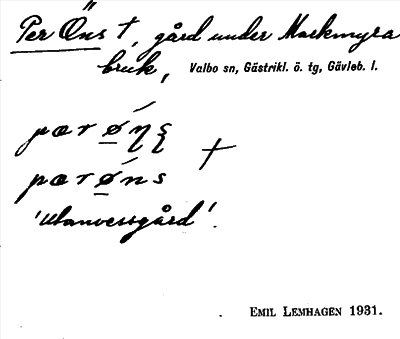 Per Öns †, gård under Mackmyra
bruk, Valbo sn, Gästrikl. ö. tg, Gävleb. l.
pær
pær øns †
'utanvessgård'.
EMIL LEMHAGEN 1931.